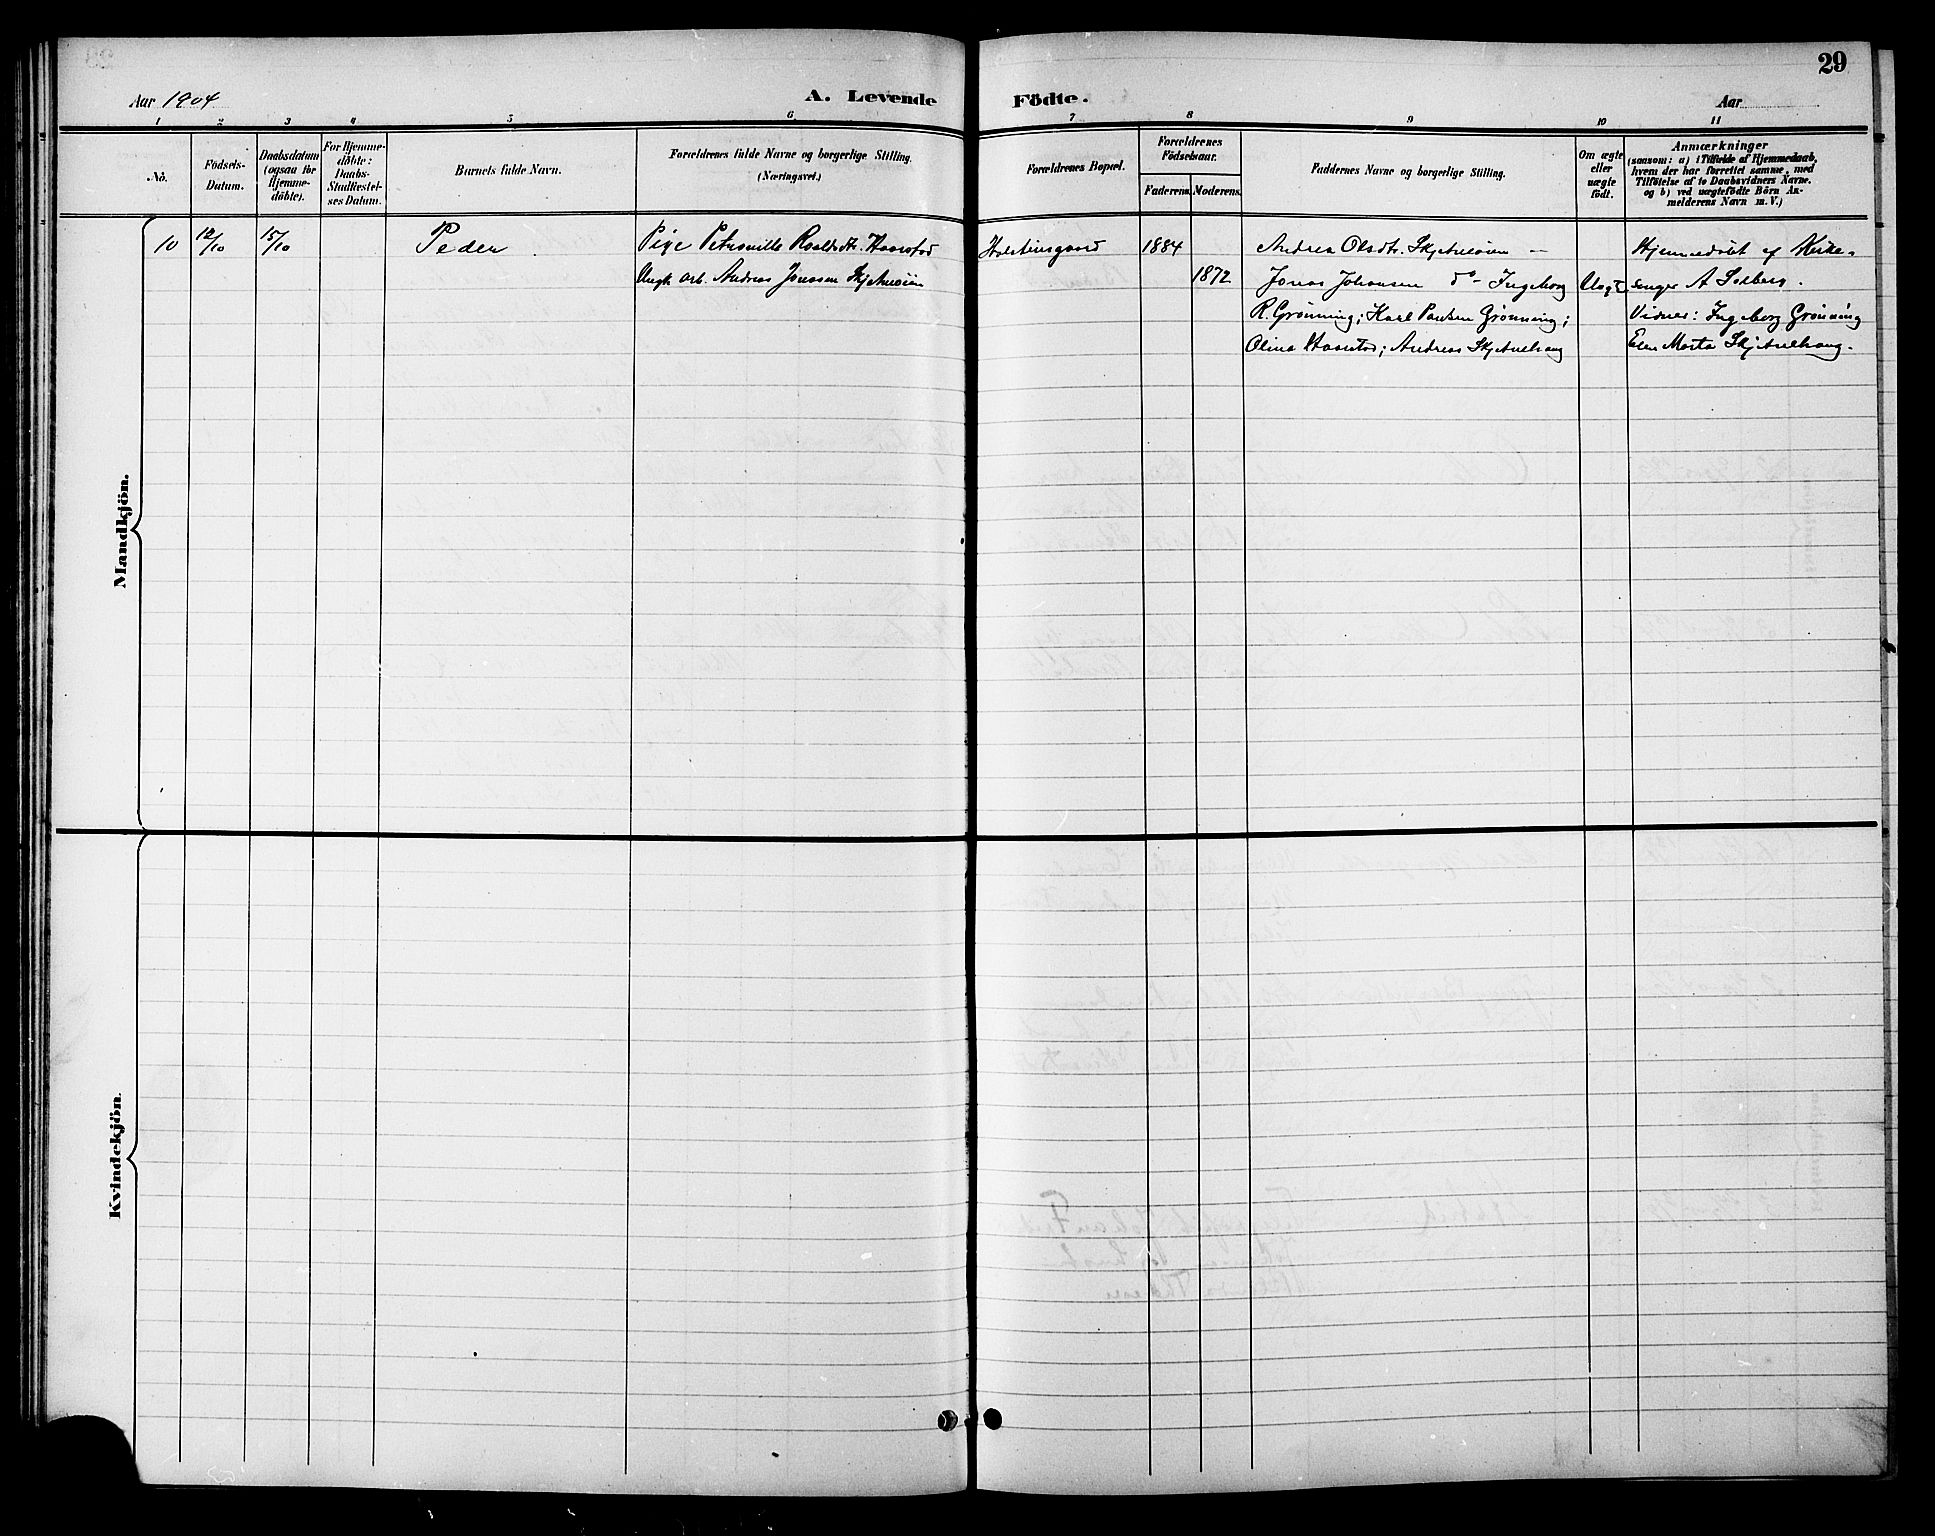 29
Aar 1904
A. Levende
Födte.
Aar
1 2 3 4 5 6 7 8 9 10 11
No.
Födsels-Datum.
Daabsdatum (ogsaa for Hjemme-döbte).
For Hjemme-döbte: Daabs-Stadfæstel-ses Datum.
Barnets fulde Navn.
Forældrenes fulde Navne og borgerlige Stilling.
(Næringsvei.)
Forældrenes Bopæl.
Forældrenes Födselsaar.
Faderens. Moderens.
Faddernes Navne og borgerlige Stilling.
Om ægte eller uægte födt.
Anmærkninger
(saasom: a) i Tilfælde af Hjemmedaab,
hvem der har forrettet samme, med
Tilföielse af to Daabsvidners Navne.
og b) ved uægtefödte Börn An-
melderens Navn m. V.)
Mandkjön.
10 12/10 15/10 Peder Pige Petronille Roaldsdt. Haarstad Holstensgaard 1884 Andrea Olsdt. Skjetneøien — Hjemmedøbt af Kirke-
Ungk. arb. Andreas Jonassen Skjetneøien 1872 Jonas Johansen do - Ingeborg Uegt. sanger A Solberg.
R. Grønning; Karl Paulsen Grønning; Vidner: Ingeborg Grønning
Olina Haarstad; Andreas Skjetnehaug Elen Marta Skjetnehaug.
Kvindekjön.